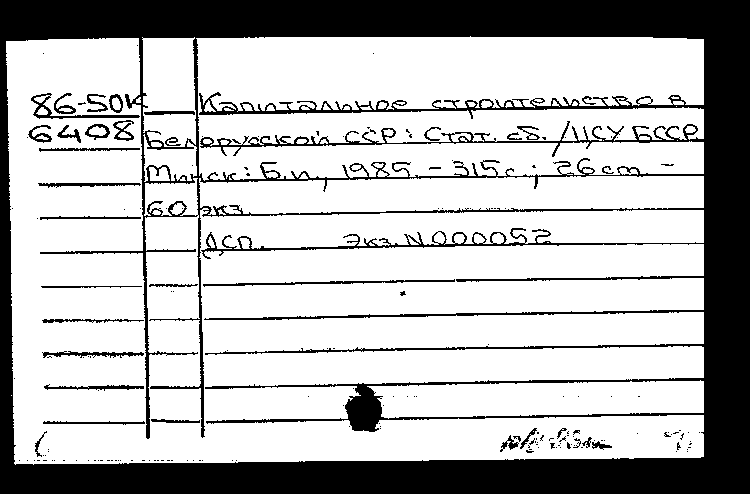 86-50К Капитальное строительство в
6408 Белорусской ССР: Стат. сб. /ЦСУ БССР
Минск: Б.и., 1985. - 315с.; 26cm. -
60 экз.
ДСП. Экз. N000052